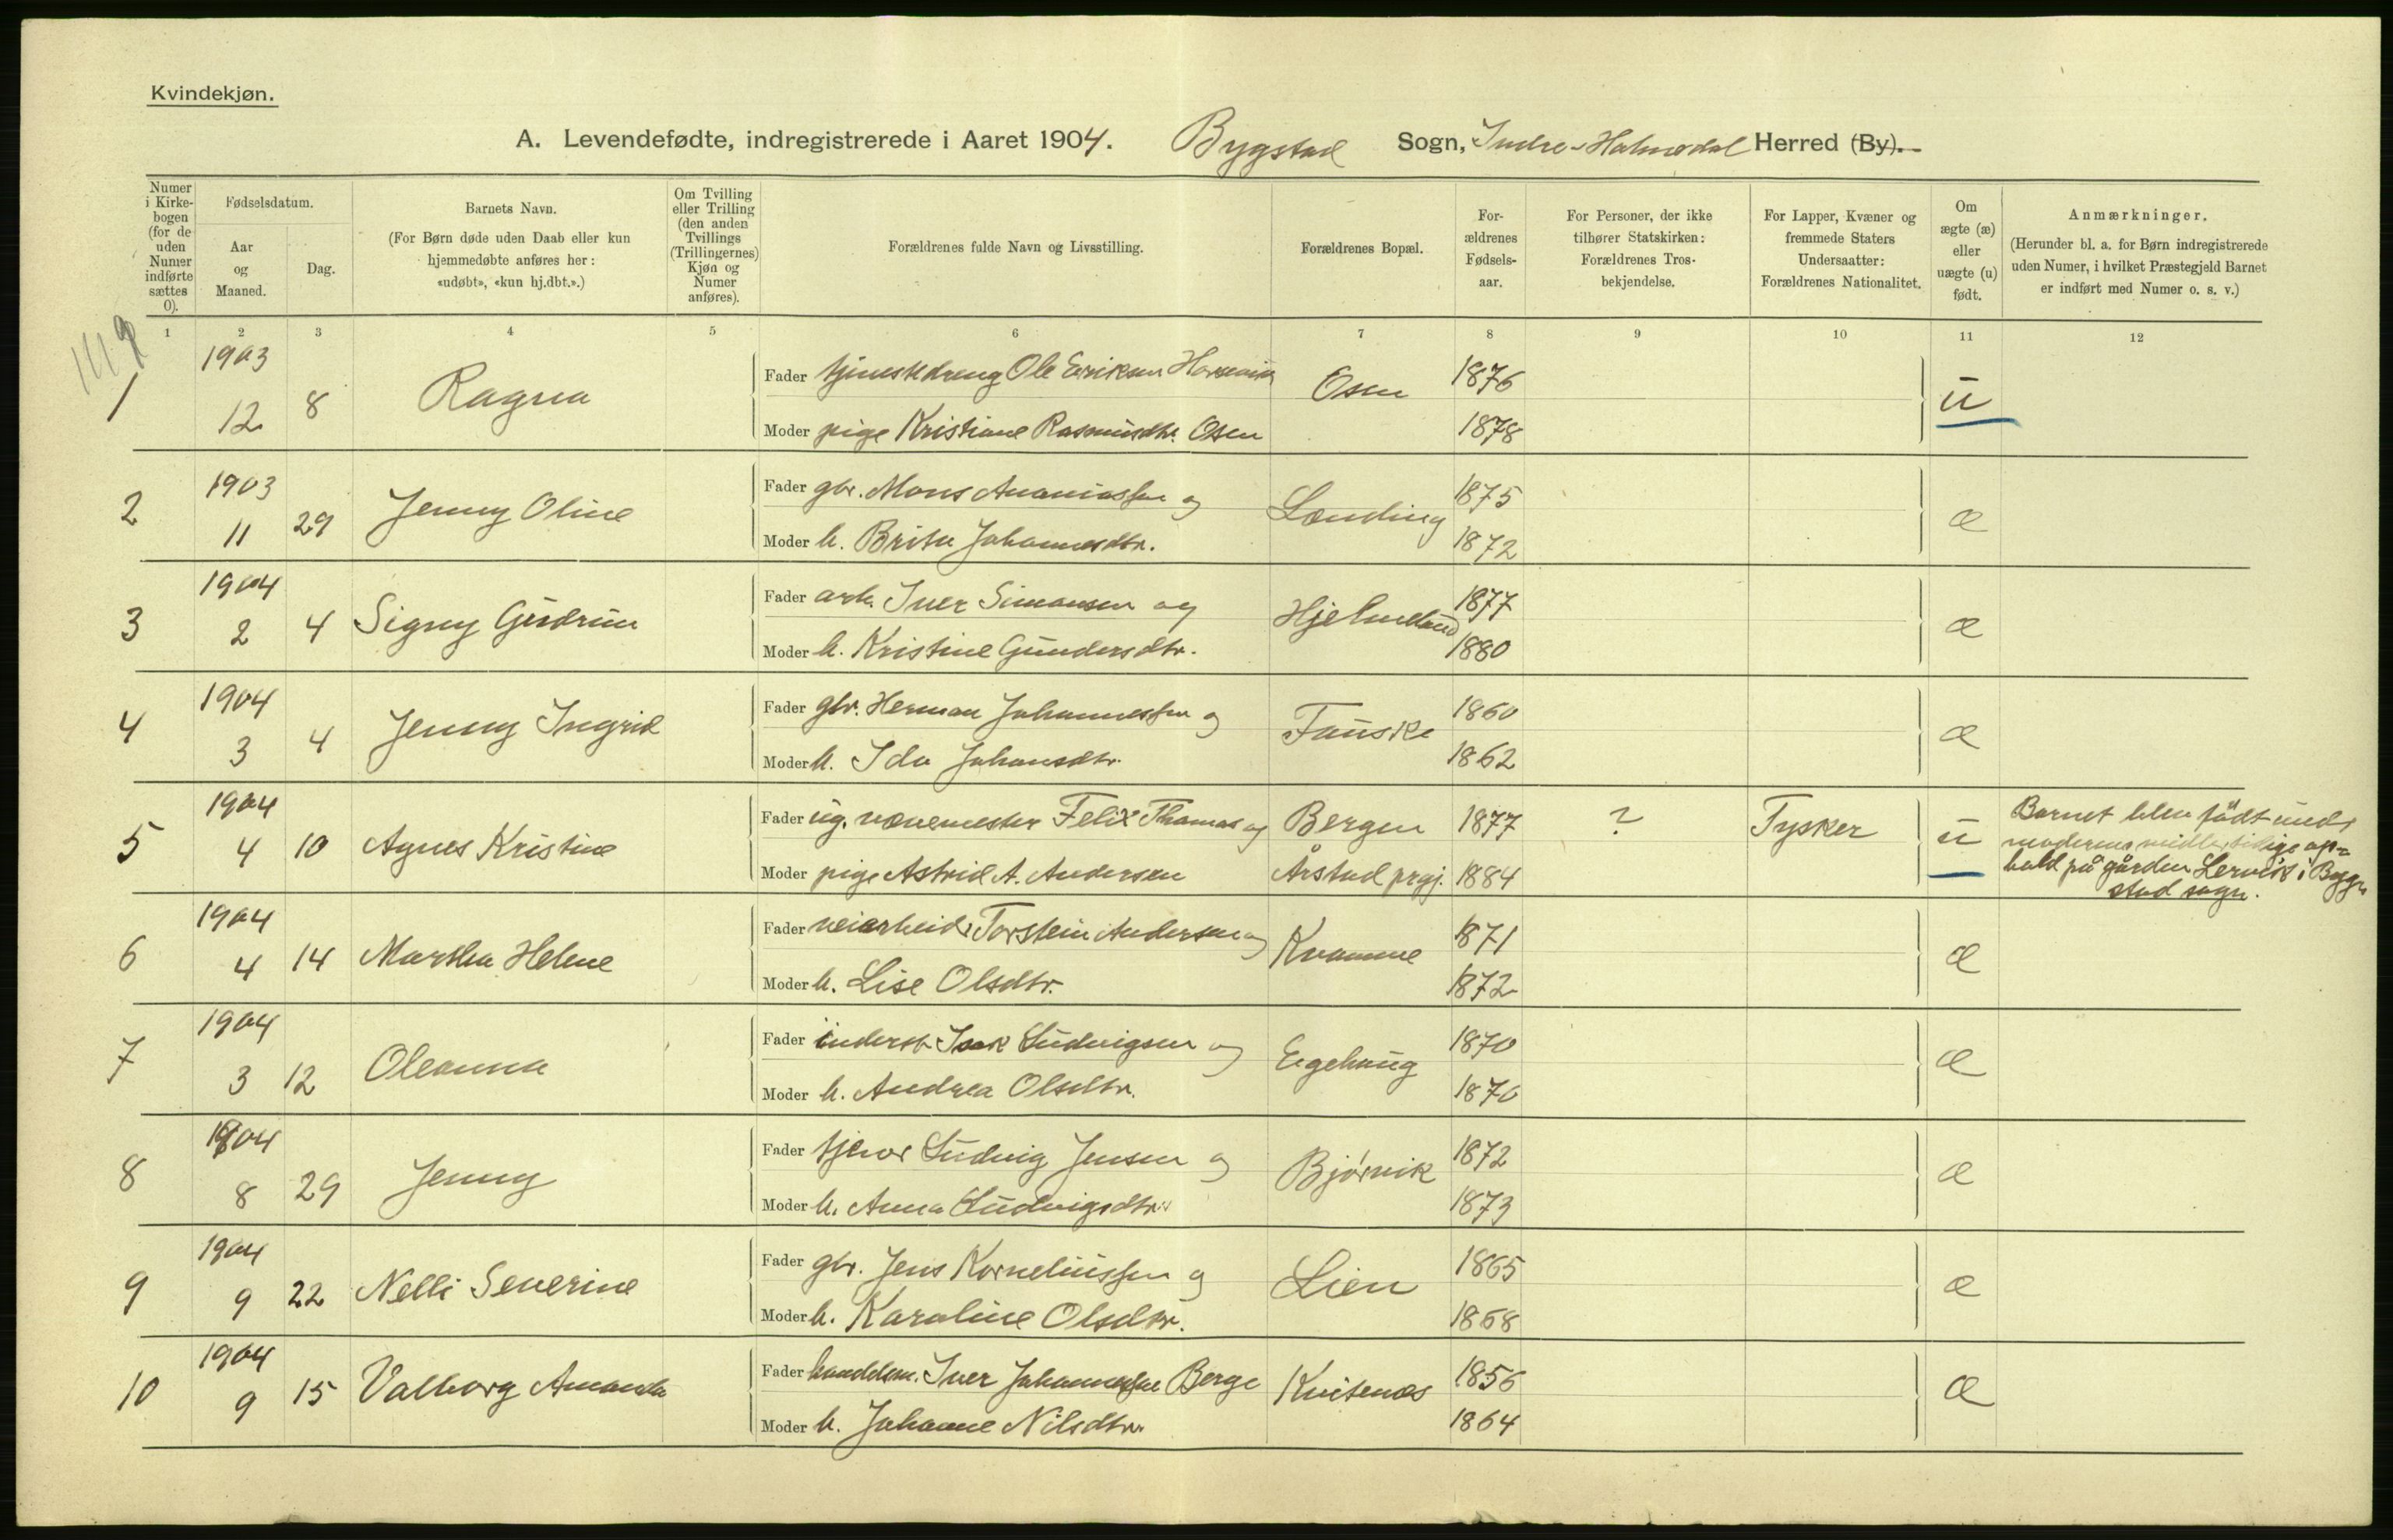 Kvindekjøn.
A. Levendefødte, indregistrerede i Aaret 1904. Bygstad Sogn, Indre-Holmedal Herred (By).
Numer i Kirke-bogen (for de uden Numer indførte sættes 0).
Fødselsdatum.
Aar og Maaned.
Dag.
Barnets Navn.
(For Børn døde uden Daab eller kun
hjemmedøbte anføres her:
«udøbt», «kun hj.dbt.».)
Om Tvilling eller Trilling (den anden Tvillings (Trillingernes) Kjøn og Numer anføres).
Forældrenes fulde Navn og Livsstilling.
Forældrenes Bopæl.
For-ældrenes Fødsels-aar.
For Personer, der ikke tilhører Statskirken: Forældrenes Tros-bekjendelse.
For Lapper, Kvæner og fremmede Staters Undersaatter: Forældrenes Nationalitet.
Om ægte (æ) eller uægte (u) født.
Anmærkninger.
(Herunder bl. a. for Børn indregistrerede
uden Numer, i hvilket Præstegjeld Barnet
er indført med Numer o. s. v.)
1 2 3 4 5 6 7 8 9 10 11 12
1 1903 12 8 Ragna
Fader tjenestedreng Ole Eriksen Osen 1876 u
Moder pige Kristiane Rasmusdtr. Osen 1878
2 1903 11 29 Jenny Oline
Fader gbr. Mons Ananiassen og Londing 1875 æ
Moder h. Brita Johannesdtr. 1872
3 1904 2 4 Signy Gudrun
Fader arb. Iver Simonsen og Hjelmeland 1877 æ
Moder h. Kristine Gundersdtr. 1880
4 1904 3 4 Jenny Ingrid
Fader gbr. Herman Johannessen og Fauske 1860 æ
Moder h. Ida Johansdtr. 1862
5 1904 4 10 Agnes Kristine
Fader ug. vævemester Felix Thomas og Bergen 1877 ? Tysker u
Moder pige Astrid A. Andersen Årstad prgj. 1884
Barnet blev født under
moderens midlertidige op-
hold på gården Lervik i Byg-
stad sogn.
6 1904 4 14 Martha Helene
Fader veiarbeider Torstein Andersen og Kvamme 1871 æ
Moder h. Lise Olsdtr. 1872
7 1904 3 12 Oleanna
Fader inderst Isak Ludvigsen og Egehaug 1870 æ
Moder h. Andrea Olsdtr. 1870
8 1904 8 29 Jenny
Fader tjener Ludvig Jensen og Bjørvik 1872 æ
Moder h. Anna Ludvigsdtr. 1873
9 1904 9 22 Nelli Severine
Fader gbr. Jens Korneliussen og Lien 1865 æ
Moder h. Karoline Olsdtr. 1868
10 1904 9 15 Valborg Amanda
Fader handelsm. Iver Johannessen Berge Kvitenæs 1856 æ
Moder h. Johanne Nilsdtr. 1864